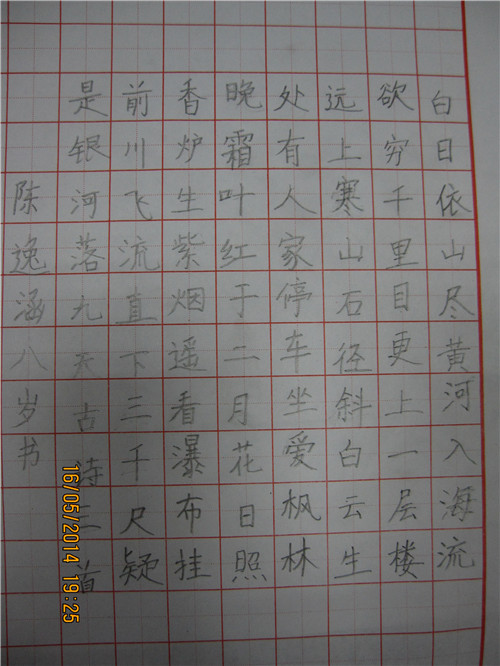 白日依山尽黄河入海流
欲穷千里目更上一层楼
远上寒山石径斜白云生
处有人家停车坐爱枫林
晚霜叶红于二月花日照
香炉生紫烟遥看瀑布挂
前川飞流直下三千尺疑
是银河落九天古诗三首
陈逸涵八岁书
16/05/2014 19:25